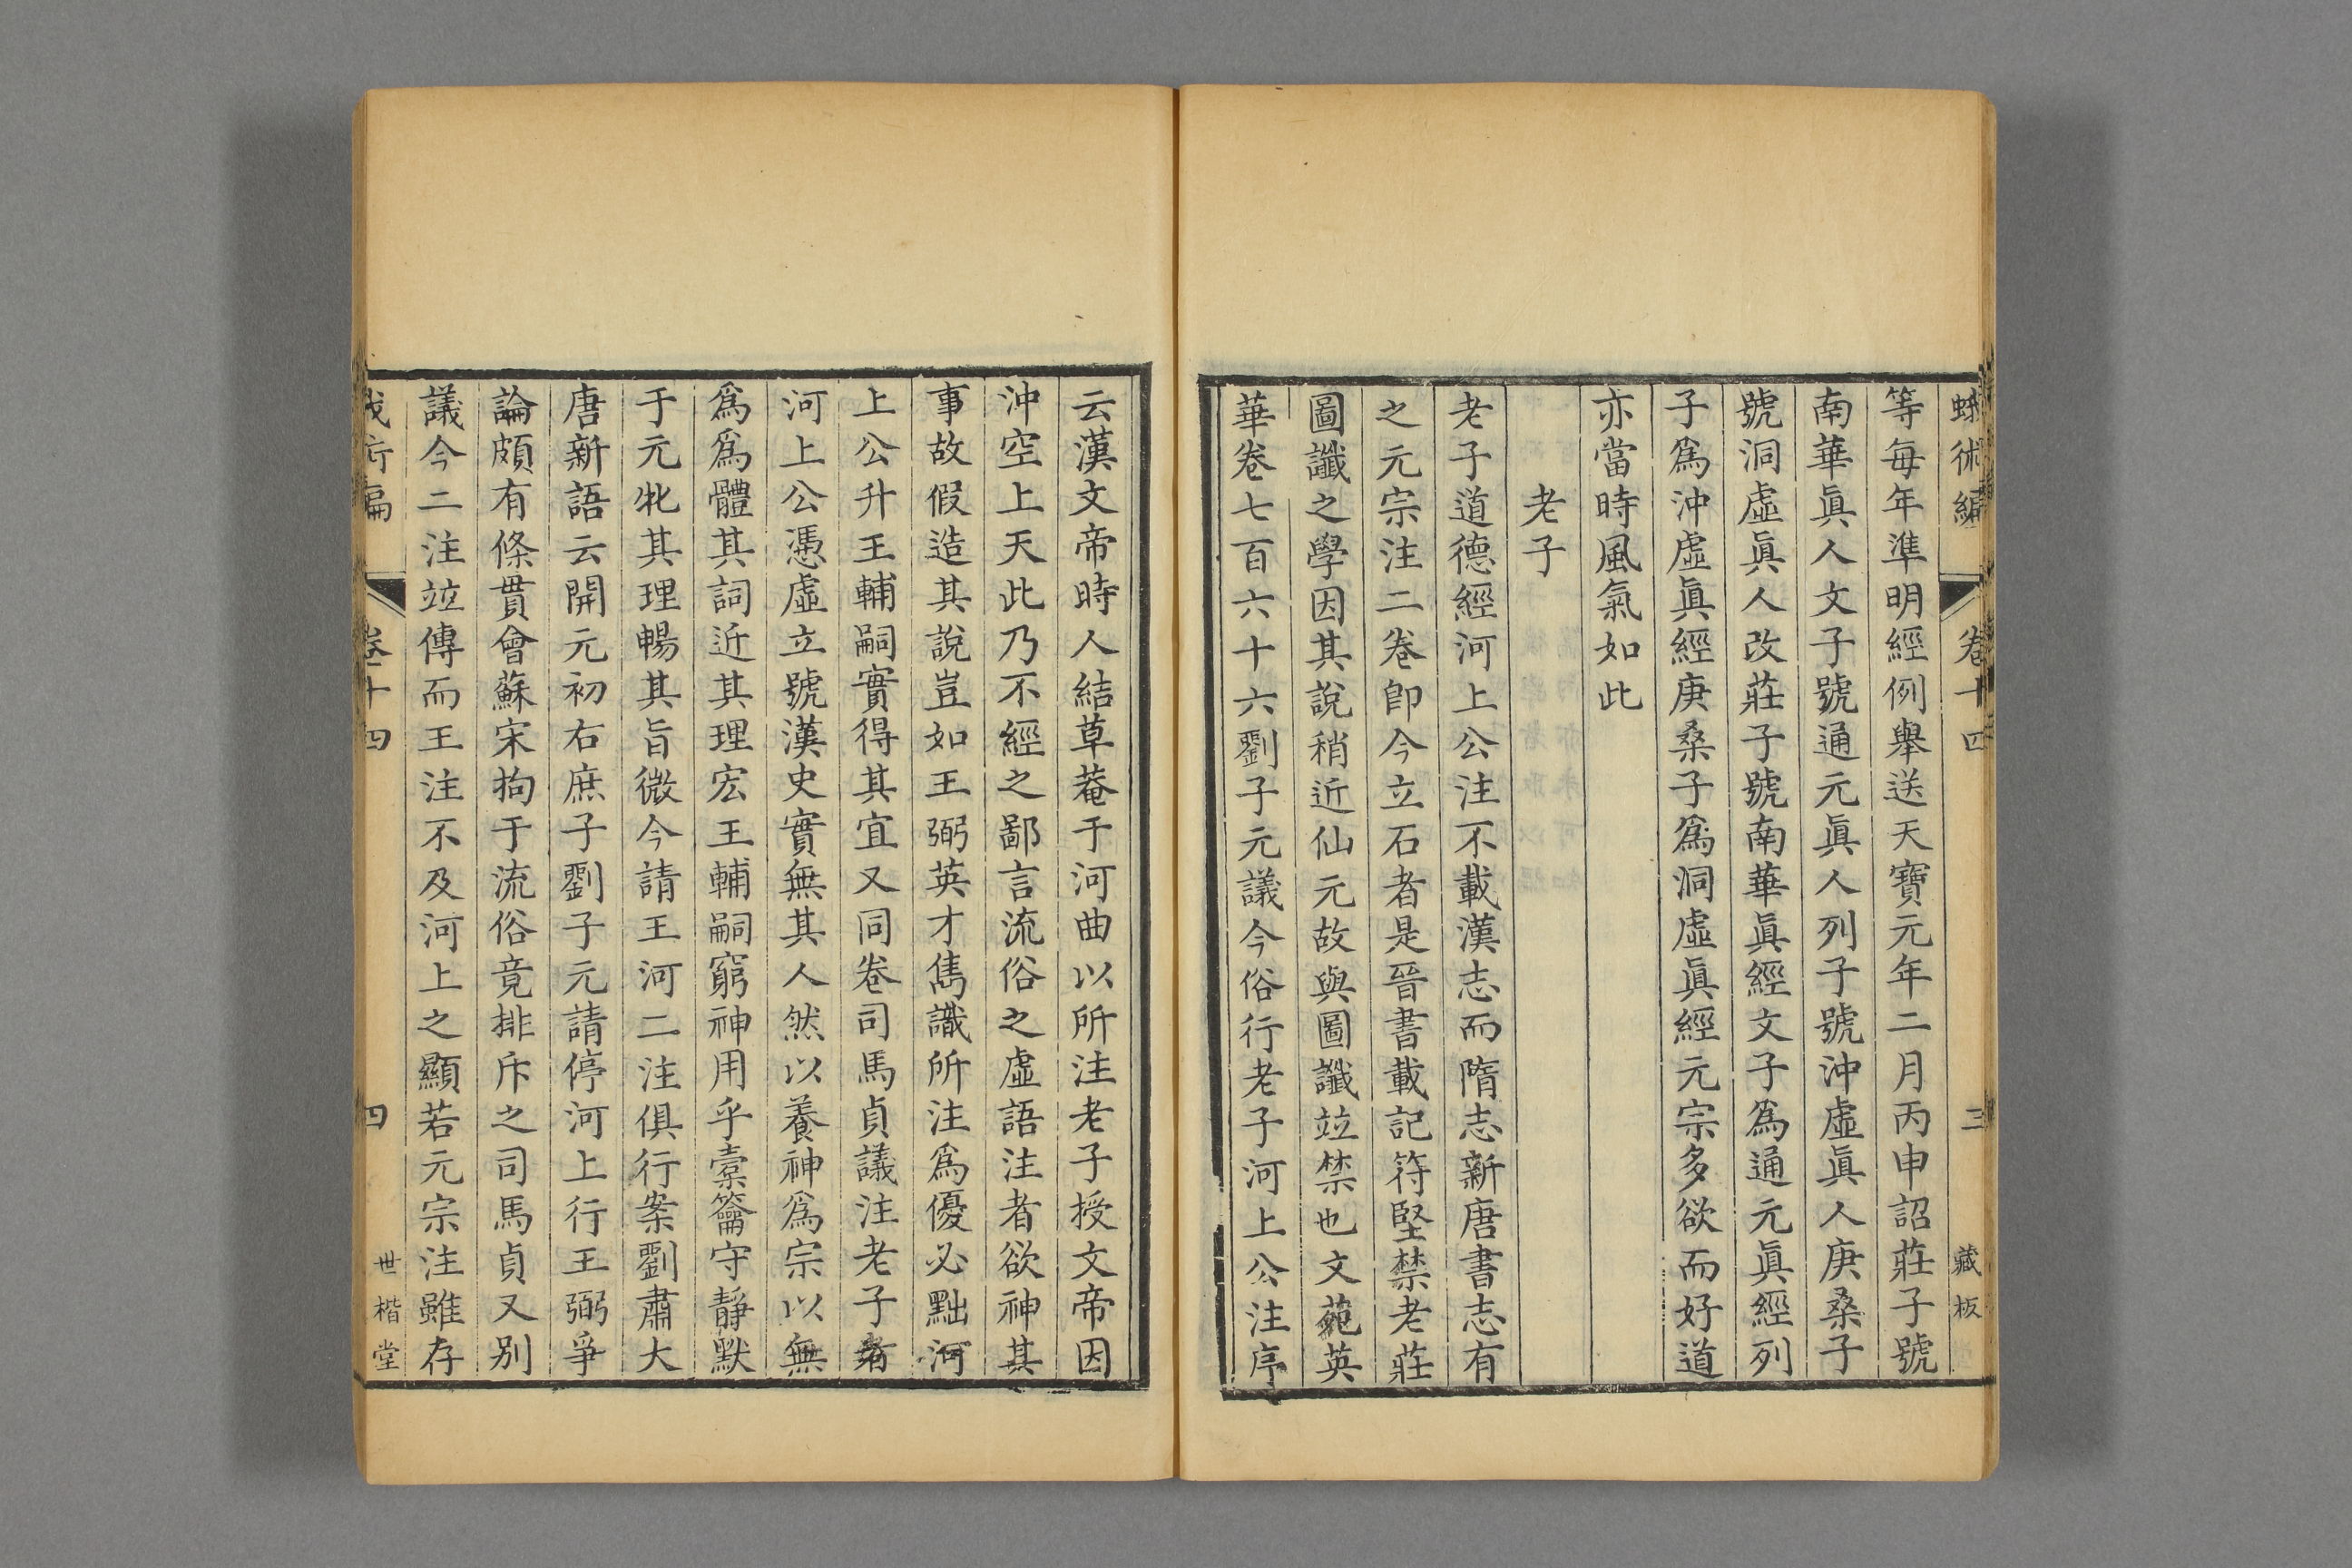 蛾術編 卷十四 三 藏板
等每年準明經例舉送天寶元年二月丙申詔莊子號
南華眞人文子號通元眞人列子號沖虛眞人庚桑子
號洞虛眞人改莊子號南華眞經文子爲通元眞經列
子爲沖虛眞經庚桑子爲洞虛眞經元宗多欲而好道
亦當時風氣如此
老子
老子道德經河上公注不載漢志而隋志新唐書志有
之元宗注二卷卽今立石者是晉書載記符堅禁老莊
圖讖之學因其說稍近仙元故與圖讖竝禁也文苑英
華卷七百六十六劉子元議今俗行老子河上公注序
云漢文帝時人結草菴于河曲以所注老子授文帝因
沖空上天此乃不經之鄙言流俗之虛語注者欲神其
事故假造其說豈如王弼英才雋識所注爲優必黜河
上公升王輔嗣實得其宜又同卷司馬貞議注老子者
河上公憑虛立號漢史實無其人然以養神爲宗以無
爲爲體其詞近其理宏王輔嗣窮神用乎橐籥守靜默
于元牝其理暢其旨微今請王河二注俱行案劉肅大
唐新語云開元初右庶子劉子元請停河上行王弼爭
論頗有條貫會蘇宋拘于流俗竟排斥之司馬貞又别
議今二注竝傳而王注不及河上之顯若元宗注雖存
蛾術編 卷十四 四 世楷堂